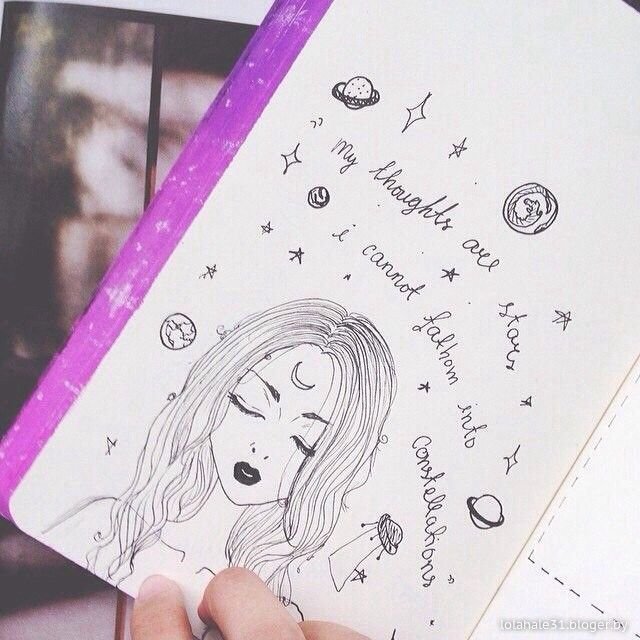 " My thoughts are stars
i cannot fathom into
constellations "
lolahale31.bloger.by